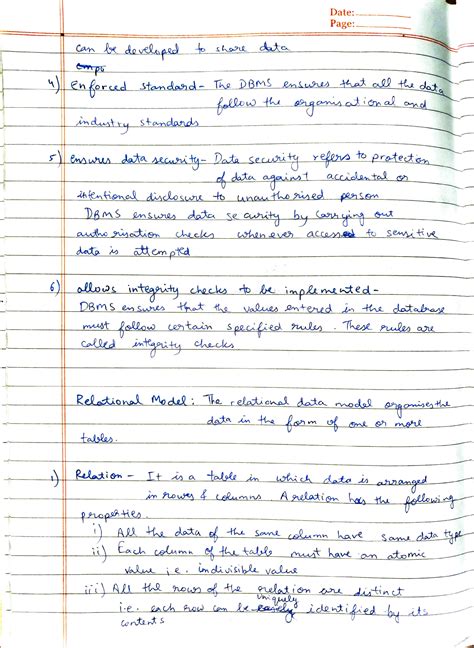 Date:
Page:
can be developed to share data
4) Enforced standard - The DBMS ensures that all the data
follow the organisational and
industry standards
5) Ensures data security - Data security refers to protection
of data against accidental or
intentional disclosure to unauthorised person
DBMS ensures data security by carrying out
authorisation checks whenever access to sensitive
data is attempted
6) allows integrity checks to be implemented -
DBMS ensures that the values entered in the database
must follow certain specified rules. These rules are
called integrity checks.
Relational Model: The relational data model organises the
data in the form of one or more
tables.
1) Relation - It is a table in which data is arranged
in rows & columns. A relation has the following
properties.
i) All the data of the same column have same data type
ii) Each column of the table must have an atomic
value i.e. indivisible value
iii) All the rows of the relation are distinct
i.e. each row can be uniquely identified by its
contents